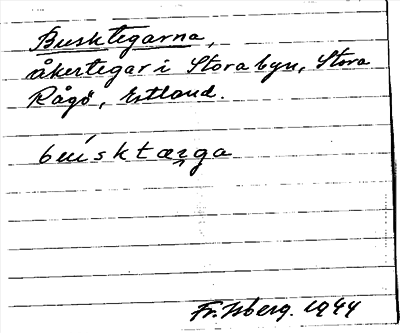 Busktegarna,
åkertegar i Stora byn, Stora
Rågö, Estland.
búsktærga
Fr. Isberg. 1944